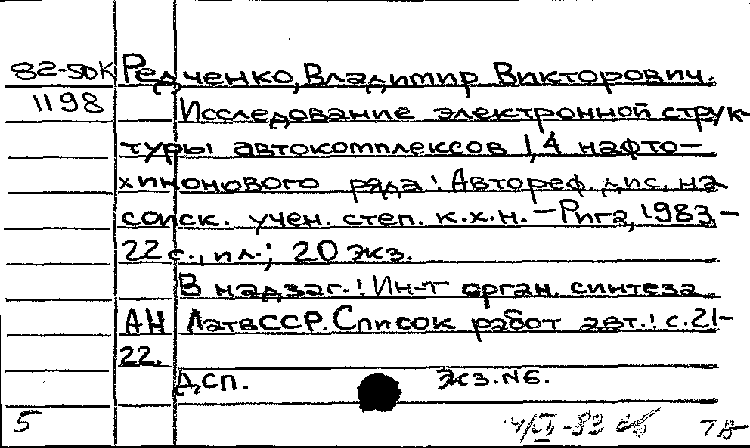 82-5ДК Редченко, Владимир Викторович.
1198 Исследование электронной струк-
туры автокомплексов 1,4 нафто-
хинонового ряда: Автореф. дис. на
соиск. учен. степ. к.х.н. - Рига, 1983 -
22 с., ил.; 20 экз.
В надзаг.: Ин-т орган. синтеза
АН ЛатвССР. Список работ авт.: с.21-
22.
Дсп. Экз.N6.
5 78